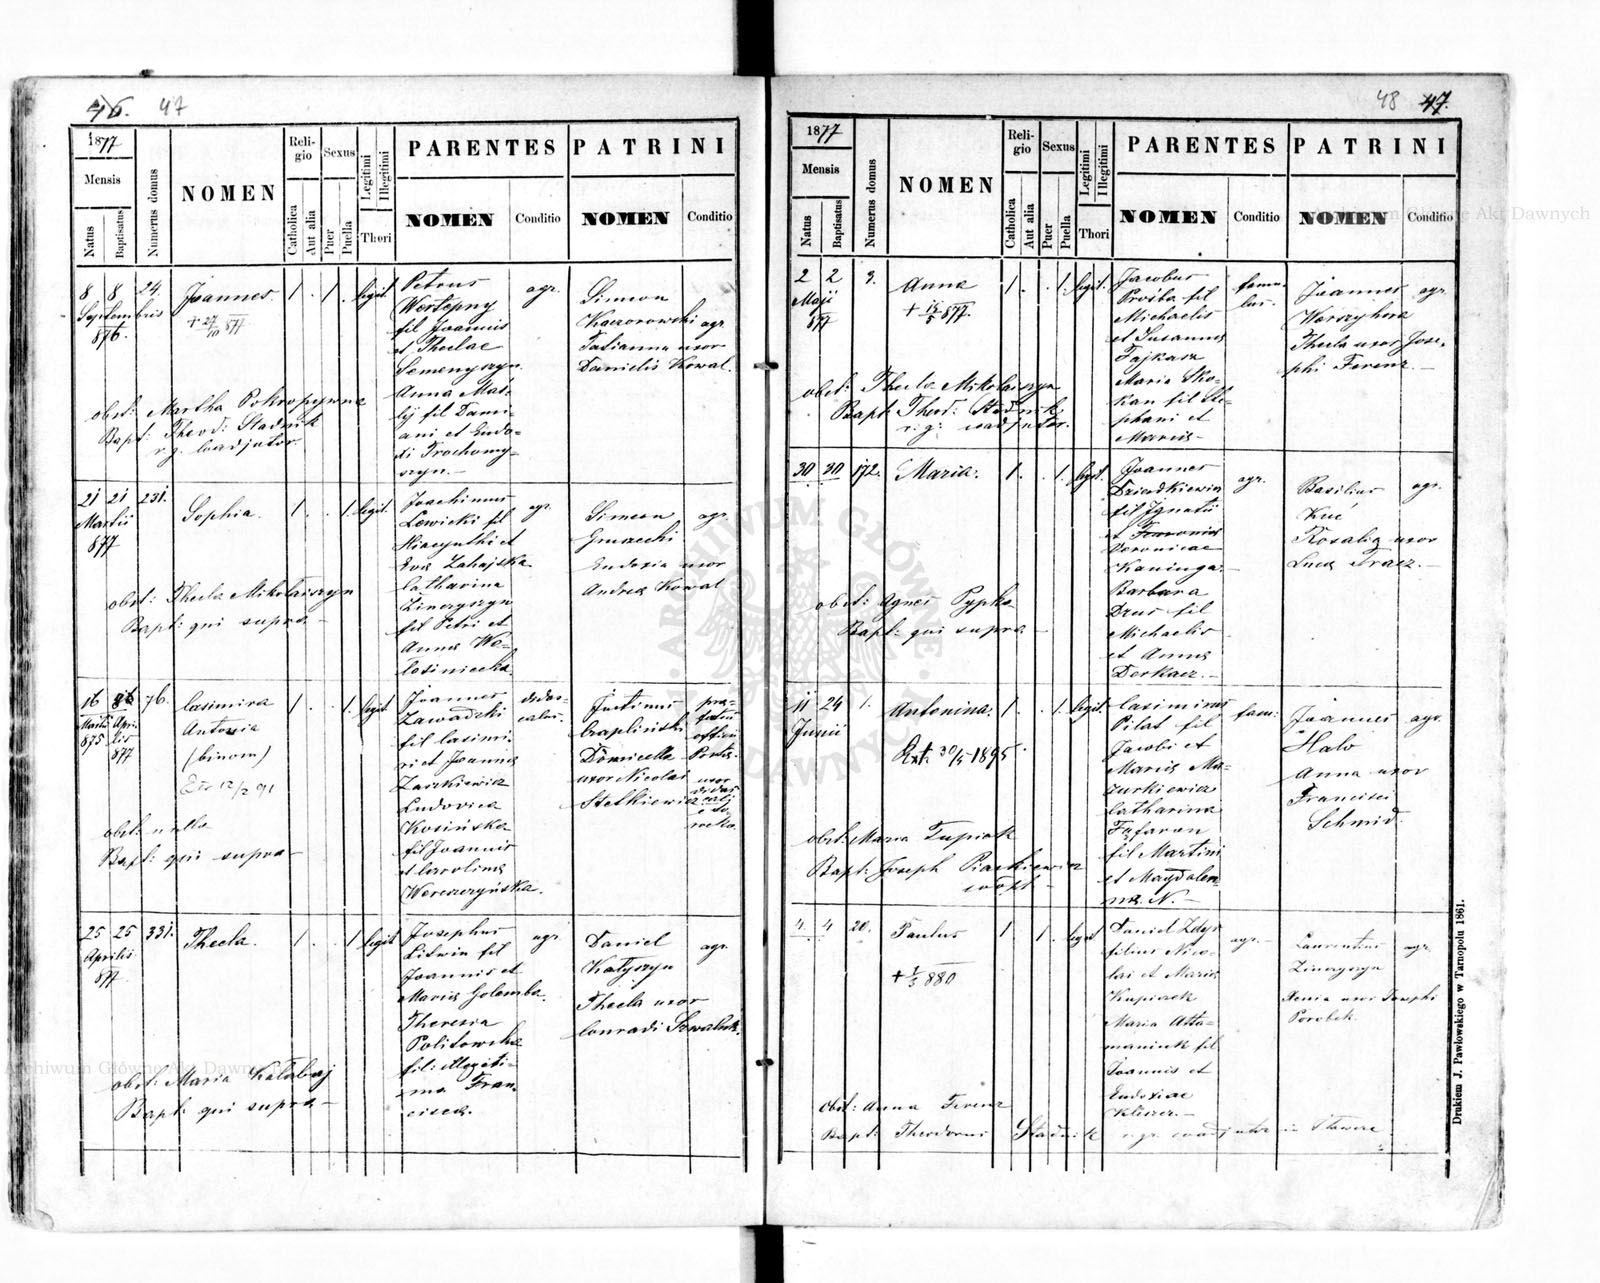 46. 47
1877
Mensis
Natus
Baptisatus
Numerus domus
NOMEN
Religio
Catholica
Aut alia
Sexus
Puer
Puella
Legitimi
Illegitimi
Thori
PARENTES
NOMEN
Conditio
PATRINI
NOMEN
Conditio
8 8 24.
Septembris
876.
Joannes.
+ 27/10 877
1 . 1 . legit.
Petrus
Wertepny
fil Joannis
et Theclae
Semenyszyn.
Anna Mas-
ij fil Dami-
ani et Eudo-
xi Trochomy-
szyn.—
agr.
Simeon
Kaczorowski agr.
Tatianna uxor
Danielis Kowal.
obst: Martha Pokropywna
Bapt: Theod: Stadnik
r. g. Coadjutor.
21 21 231.
Martii
877
Sophia.
1 . . 1. legit.
Joachimus
Lewicki fil
Hiacynthi et
Eva Zahajska.
Catharina
Zinczyszyn
fil Petri et
Anna Wo-
losiniecka.
agr.
Simeon agr.
Gmrecki
Eudoxia uxor
Andrea Kowal
obst: Thecla Mikolaiszyn
Bapt: qui supra —
16 26 76.
Martii Apri-
875 lis
877
Casimira
Antonia
(binom)
Ex 12/2 91
1 . . 1. legit
Joannes
Zawadzki
fil Casimi-
ri et Joanna
Zaszkiewicz
Ludovica
Kosińska
fil Joannis
et Carolina
Wereszczyńska.
Justinus
Czapliński
Domicella
uxor Nicolai
Stetkiewicz
obst: nulla
Bapt: qui supra —
25 25 331.
Aprilis
877.
Thecla.
1 . . 1 legit
Josephus
Litwin fil
Joannis et
Maria Golemba.
Theresia
Politowska
fil: illegiti-
ma Fran-
cisca.
agr.
Daniel agr.
Katyszyn
Thecla uxor
Conradi Kowaluk.
obst: Maria Kalabaj
Bapt: qui supra —
48 47.
1877
Mensis
Natus
Baptisatus
Numerus domus
NOMEN
Religio
Catholica
Aut alia
Sexus
Puer
Puella
Legitimi
Illegitimi
Thori
PARENTES
NOMEN
Conditio
PATRINI
NOMEN
Conditio
2 2 3.
Maji
877
Anna
1 . . 1. legit.
Jacobus
Prośba fil
Michaelis
et Susanna
Tajkasz
Maria Sko-
kan fil Ste-
phani et
Maria —
famu-
lus.
Joannes agr.
Werszyhora
Thecla uxor Jose-
phi Ferenz.
obst: Thecla Mikolaiszyn
Bapt: Theod: Stadnik
r. g. coadjutor.
30 30 172.
Maria.
1 . . 1. legit.
Joannes
Dziadkiewicz
fil Ignatii
et
Veronicae
Kaninga.
Barbara
Dzus fil
Michaelis
et Anna
Derkacz.—
agr.
Basilius agr.
Kuć
Rosalia uxor
Luca Trasz.—
obst: Agnes Pypka
Bapt: qui supra —
11 24 1.
Junii
Antonina.
Ext. 30/5 1895
1 . . 1. legit.
Casimirus
Pilat fil
Jacobi et
Maria Ma-
zurkiewicz
Catharina
fil Martini
et Magdalen-
na N.—
fam:
Joannes agr.
Halo
Anna uxor
Francisci
Schmid.
obst: Maria Tupiak
Bapt: Joseph Piaskiewicz
coop. —
4 4 20.
Paulus
+ 1/3 880
1 . 1. legit
Daniel Zdyr
filius Nico-
lai et Maria
Kupiacek
Maria Atta-
maniuk fil
Joannis et
Eudoxiae
agr.—
Laurentius agr.
Zinczyszyn
Xenia uxor Josephi
Porobek.
Obst: Anna Ferenz
Bapt: Theodorus Stadnik r. gr. coadjutor in Plawcze
Drukiem J. Pawłowskiego w Tarnopolu 1861.
ARCHIWUM GŁÓWNE AKT DAWNYCH
Archiwum Główne Akt Dawnych
Archiwum Główne Akt Dawnych